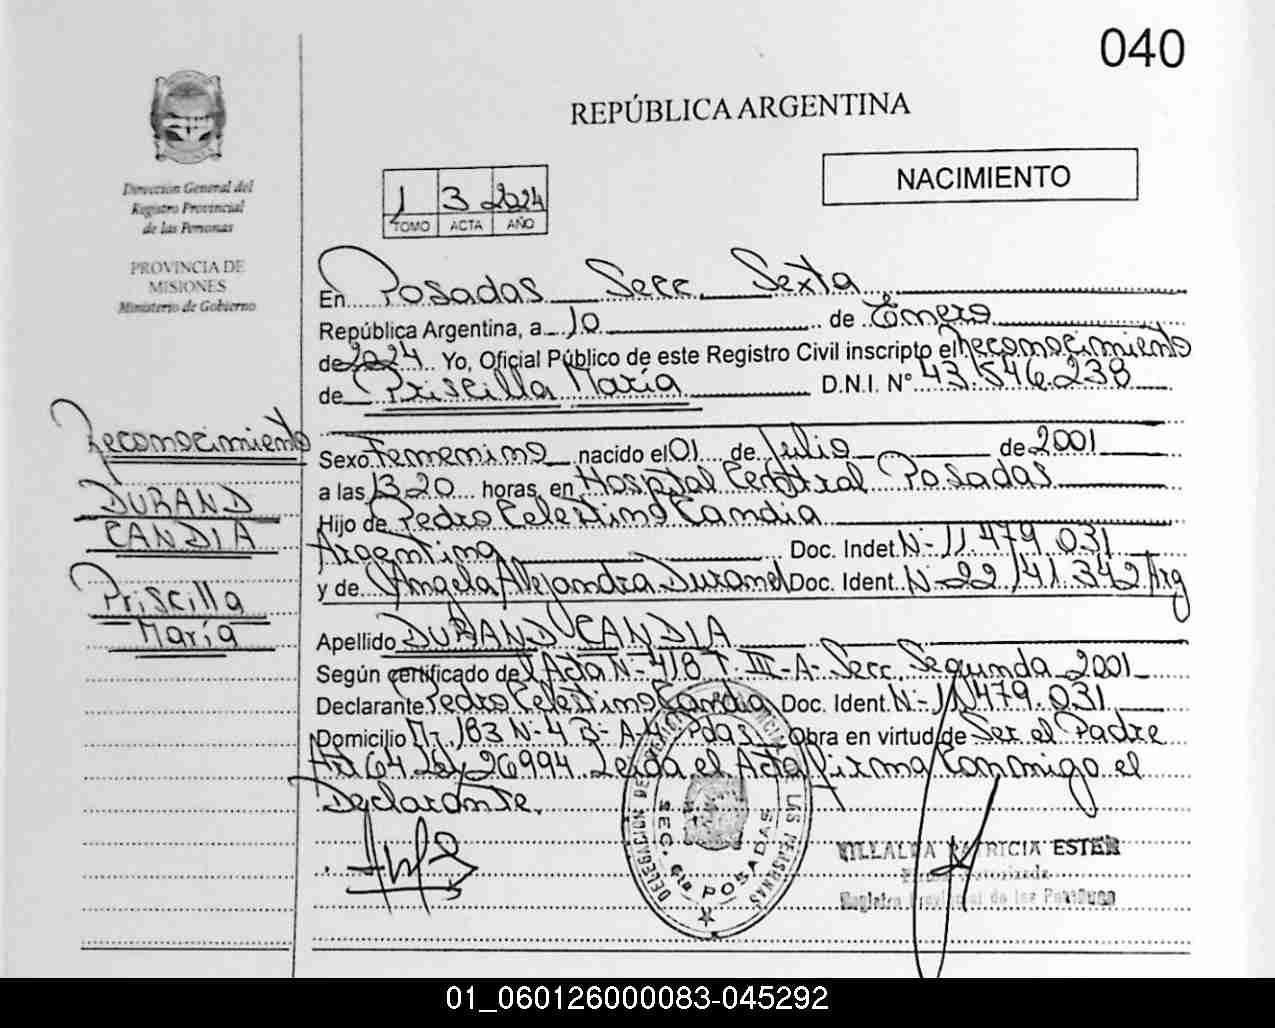 040
REPÚBLICA ARGENTINA
NACIMIENTO
Dirección General del
Registro Provincial
de las Personas
PROVINCIA DE
MISIONES
Ministerio de Gobierno
1 3 2024
TOMO ACTA AÑO
En Posadas Secc. Sexta
República Argentina, a 10 de Enero
de 2024 Yo, Oficial Público de este Registro Civil inscripto el Reconocimiento
de Priscilla María D.N.I. N° 43.546.238
Reconocimiento
DURAND
CANDIA
Priscilla
María
Sexo Femenino nacido el 01 de Julio de 2001
a las 13 20 horas, en Hospital Central Posadas
Hijo de Pedro Celestino Candia
Argentina Doc. Indet. N- 11.479.031
y de Angela Alejandra Durand Doc. Ident. N- 22.141.342 Arg
Apellido DURAND CANDIA
Según certificado del Acta N- 418 T. III-A- Secc. Segunda 2001
Declarante Pedro Celestino Candia Doc. Ident. N- 11.479.031
Domicilio Mz 183 N- 43- A-4 Pdas Obra en virtud de Ser el Padre
Art 64 Ley 26994 Leida el Acta firma Conmigo el
Declarante.
DELEGACION DE LAS PERSONAS
SEC. 6ta POSADAS
VILLALBA PATRICIA ESTER
Autorizada
Registro Provincial de las Personas
01_060126000083-045292